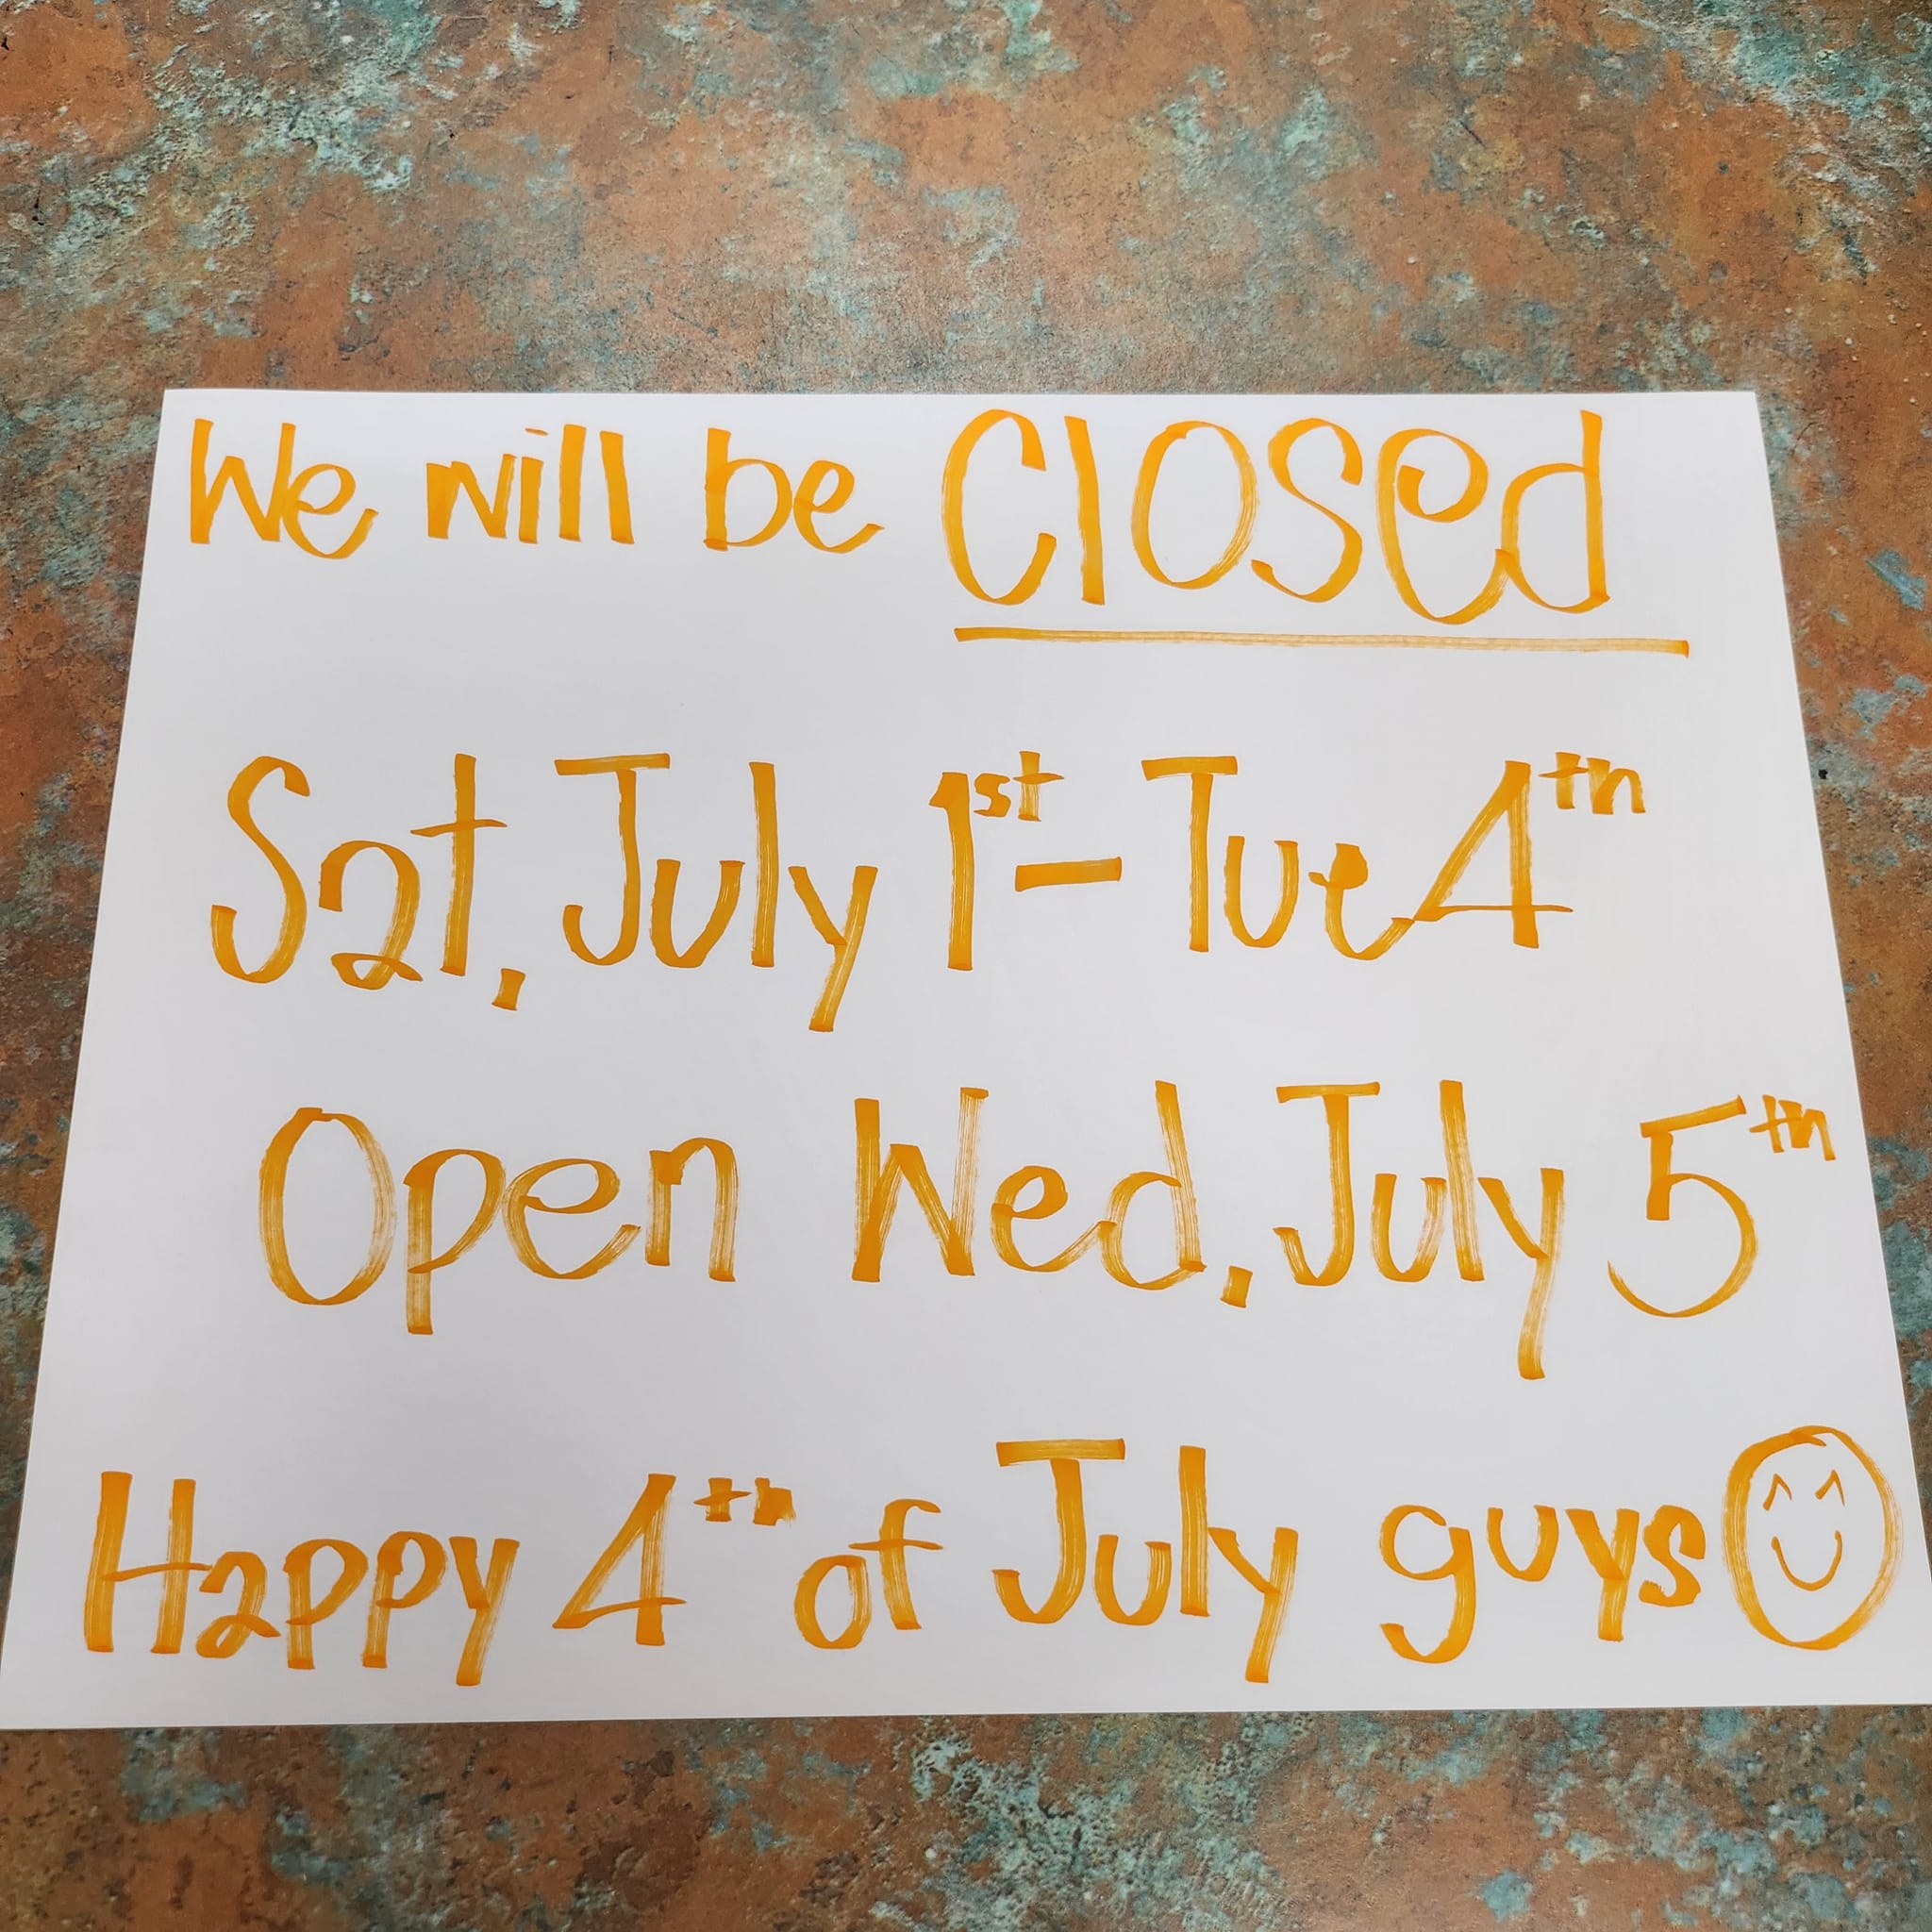 We will be Closed
Sat. July 1st - Tue 4th
Open Wed. July 5th
Happy 4th of July guys